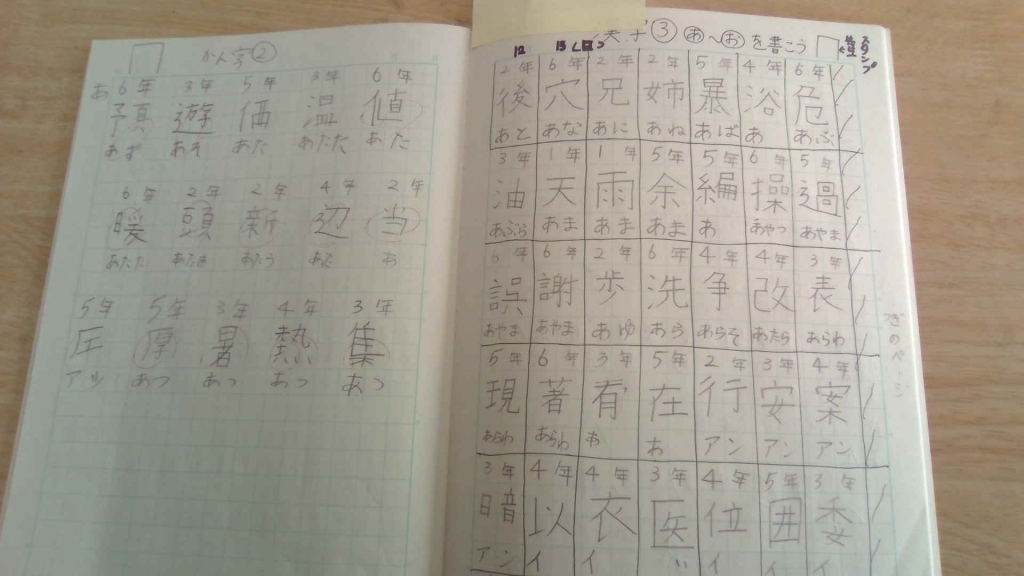 かん字②
あ 6年 3年 5年 3年 6年
預 遊 価 温 値
あず あそ あた あたた あた
6年 2年 2年 4年 2年
暖 頭 新 辺 当
あたた あたま あた あ
5年 5年 3年 4年 3年
圧 厚 暑 熱い 集
アツ あつ あつ あつ あつ
漢字③ あ〜お を書こう
2年 6年 2年 2年 5年 4年 6年
後 穴 兄 姉 暴 浴 危
あと あな あに あね あば あ あぶ
3年 1年 1年 5年 5年 6年 5年
油 天 雨 余 編 操 過
あぶら あま あま あま あ あやつ あやま
6年 6年 2年 6年 4年 4年 3年
誤 謝 歩 洗 争 改 表
あやま あやま あゆ あら あらそ あたら あらわ
5年 6年 3年 5年 2年 3年 4年
現 著 有 在 行 安 案
あらわ あらわ あ あ アン アン アン
3年 4年 4年 3年 4年 5年 3年
暗 以 衣 医 位 囲 委
アン イ イ イ イ イ イ